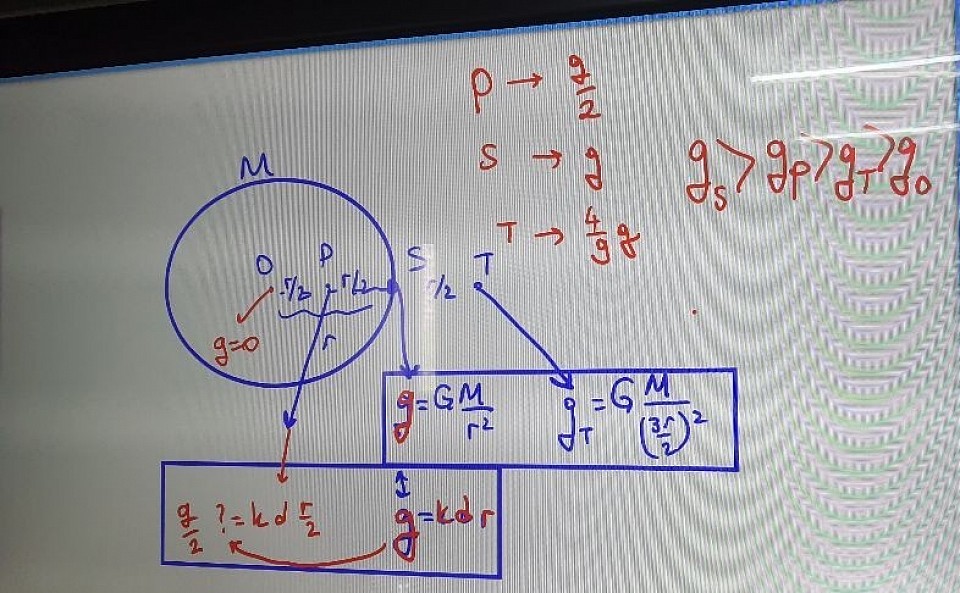 P → g/2
S → g
T → 4/9 g
g_S > g_P > g_T > g_0
M
O P S T
r/2 r/2 r/2
r
g=0
g = G M/r²
g_T = G M/(3r/2)²
g/2 ? = k d r/2
g = k d r